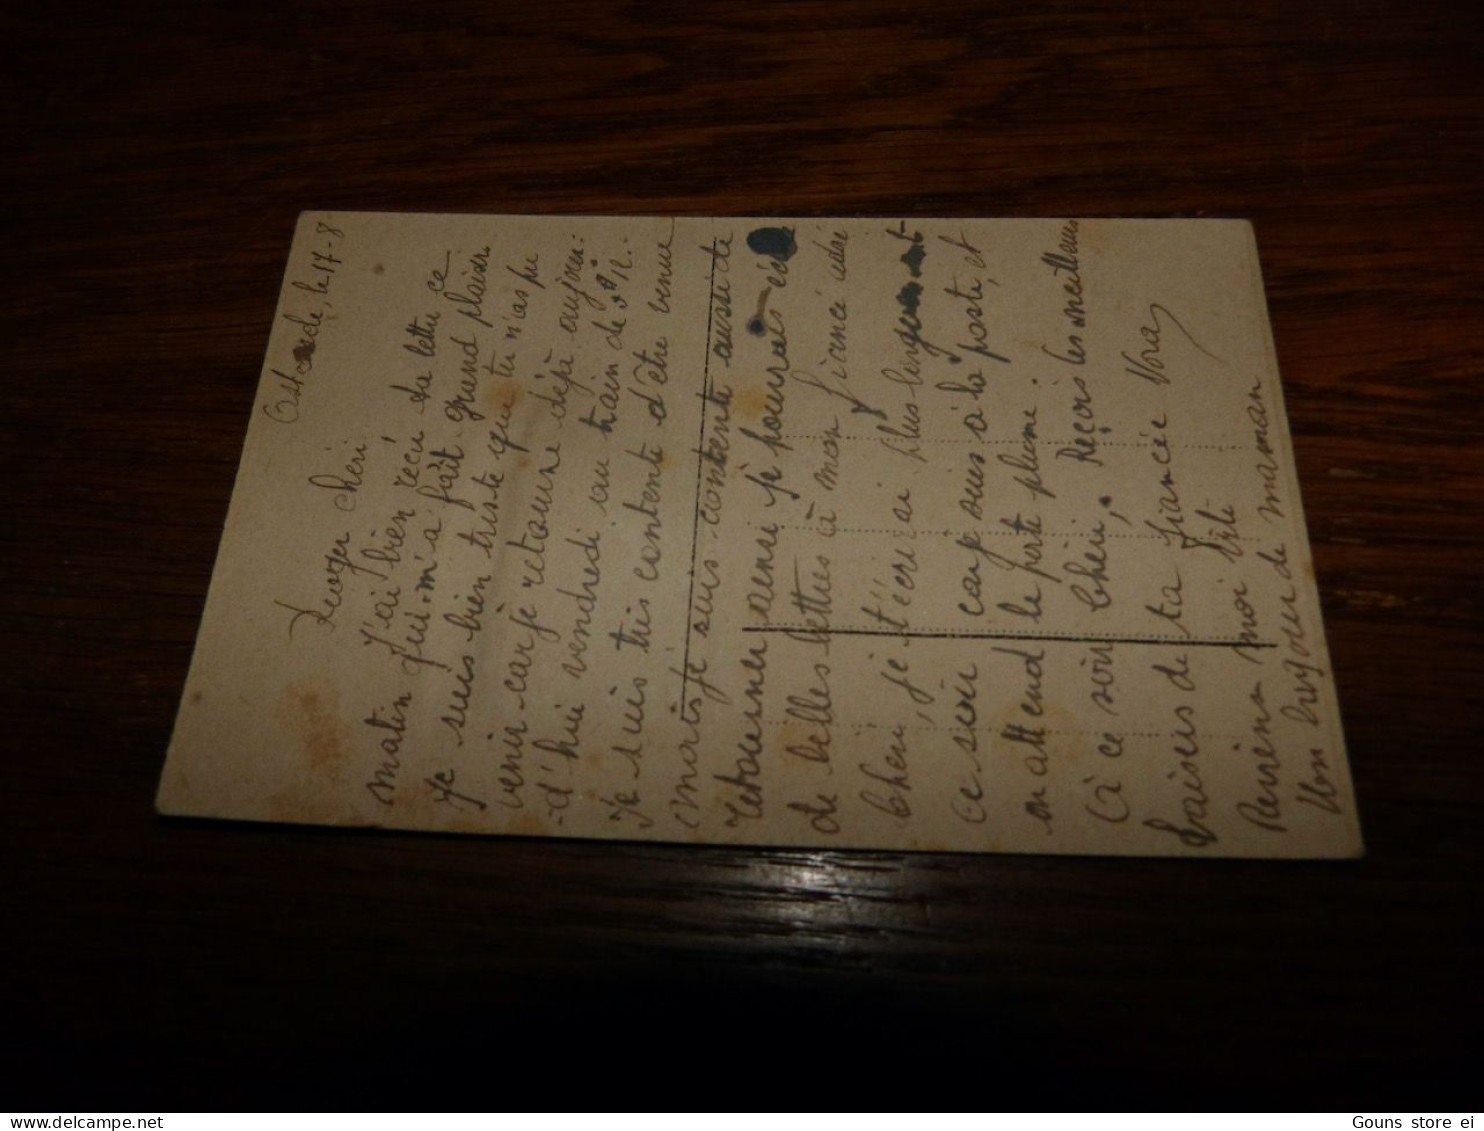 Ostende, le 17-8-
Roger chéri
J'ai bien reçu ta lettre ce
matin qui m'a fait grand plaisir
Je suis bien triste que tu n'as pu
venir car je retourne déjà aujour-
-d'hui vendredi au train de
Je suis très contente d'être venue
mais je suis contente aussi de
retourner ainsi je pourrais
de belles lettres à mon fiancé adoré
Chéri, je t'écrirai plus longuement
ce soir car je suis à la poste, et
on attend le porte plume.
A ce soir chéri, Reçois les meilleurs
baisers de ta fiancée
Reviens moi vite
Un bonjour de maman
www.delcampe.net
Gouns store ei